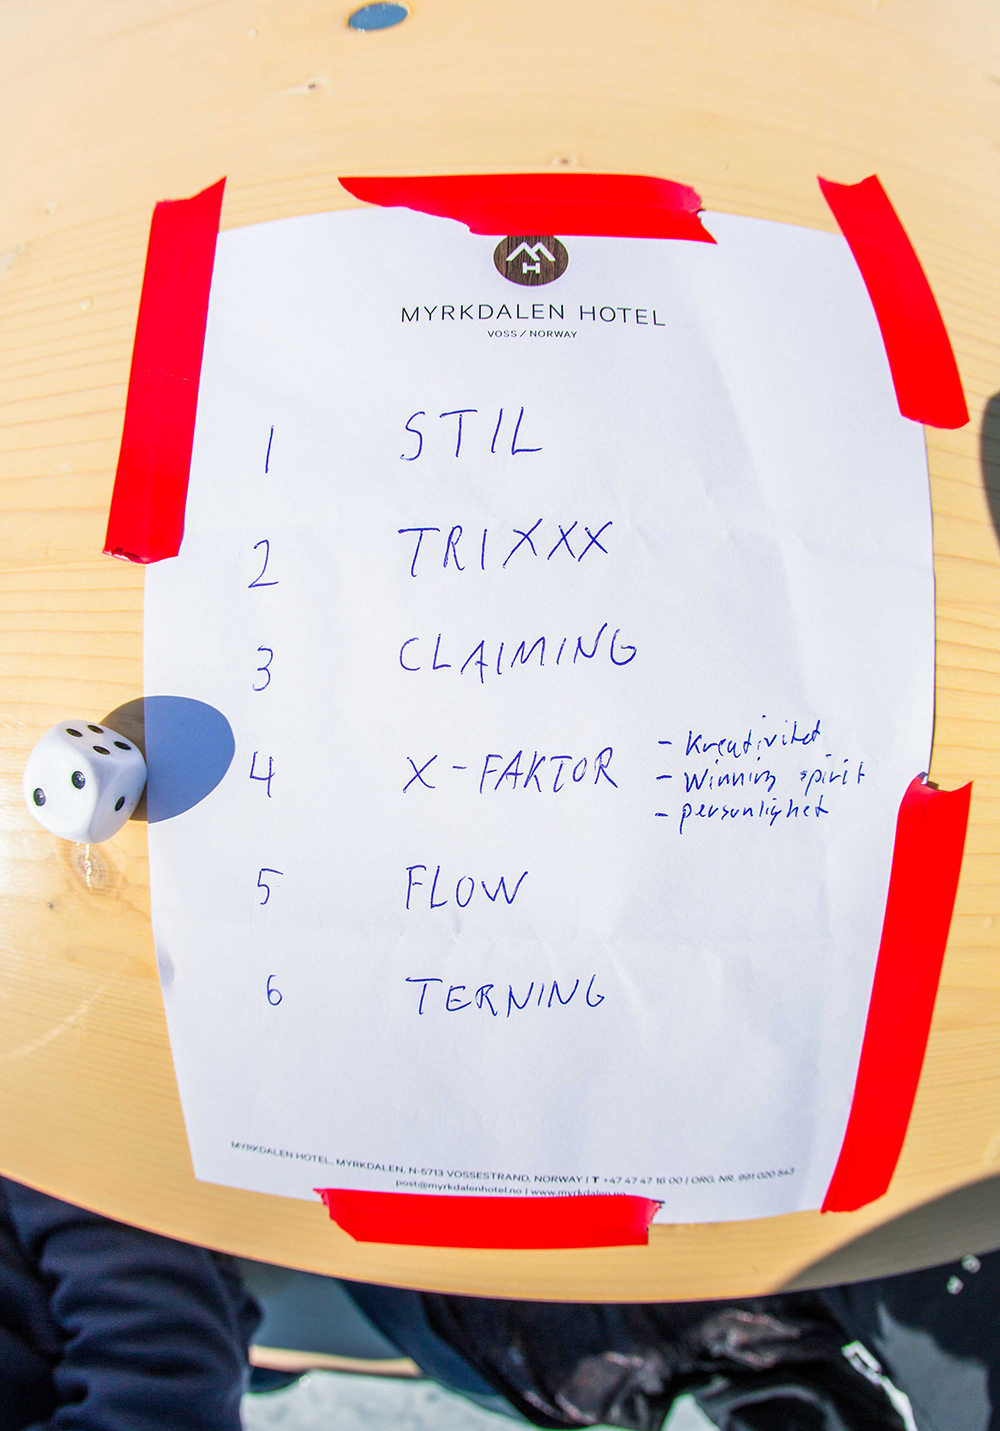 MH
MYRKDALEN HOTEL
VOSS / NORWAY
1 STIL
2 TRIXXX
3 CLAIMING
4 X-FAKTOR
- Kreativitet
- Winning spirit
- personlighet
5 FLOW
6 TERNING
MYRKDALEN HOTEL, MYRKDALEN, N-5713 VOSSESTRAND, NORWAY | T +47 47 47 16 00 | ORG. NR. 991 020 543
post@myrkdalenhotel.no | www.myrkdalen.no